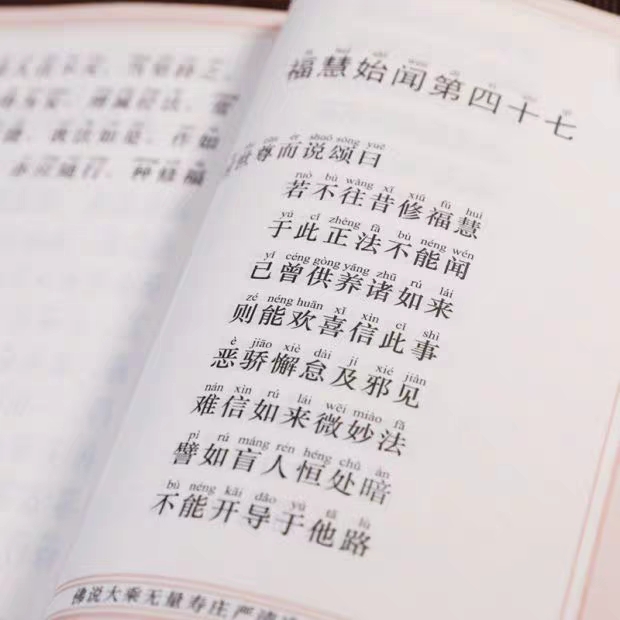 增减经法，
我法如是，作如
福慧始闻第四十七
ér shuō sòng yuē
尊而说颂曰
ruò bù wǎng xī xiū fú huì
若不往昔修福慧
yú cǐ zhèng fǎ bù néng wén
于此正法不能闻
yǐ céng gòng yǎng zhū rú lái
已曾供养诸如来
zé néng huān xǐ xìn cǐ shì
则能欢喜信此事
è jiāo xiè dài jí xié jiàn
恶骄懈怠及邪见
nán xìn rú lái wēi miào fǎ
难信如来微妙法
pì rú máng rén héng chǔ àn
譬如盲人恒处暗
bù néng kāi dǎo yú tā lù
不能开导于他路
佛说大乘无量寿庄严清